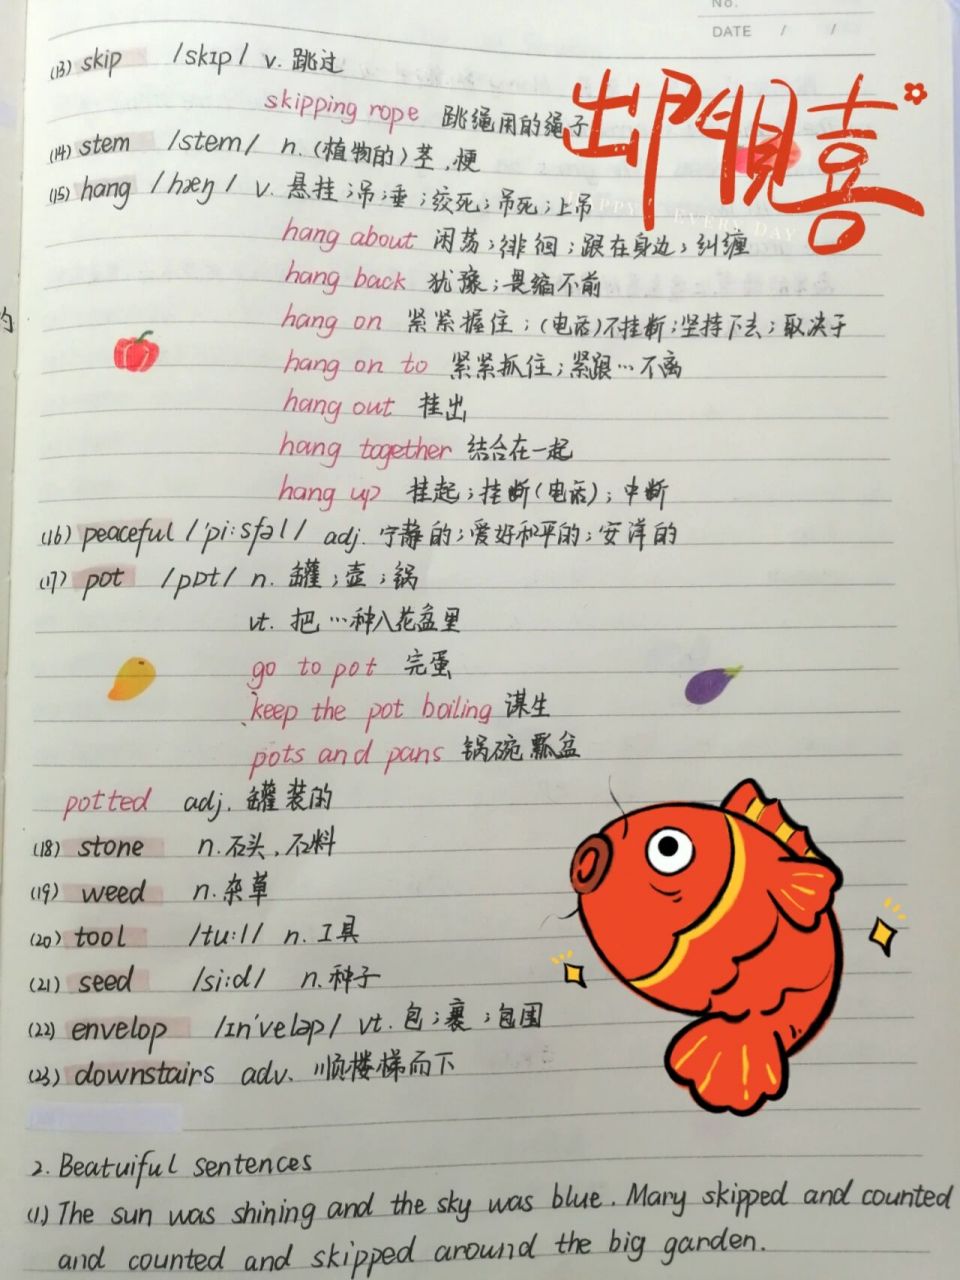 No.
DATE / /
(13) skip /skɪp/ v. 跳过
skipping rope 跳绳用的绳子
出门见喜
(14) stem /stem/ n. (植物的)茎,梗
(15) hang /hæŋ/ v. 悬挂;吊;垂;绞死;吊死;上吊
HAPPY EVERY DAY
hang about 闲荡;徘徊;跟在身边;纠缠
hang back 犹豫;畏缩不前
hang on 紧紧握住;(电话)不挂断;坚持下去;取决于
的
hang on to 紧紧抓住;紧跟…不离
hang out 挂出
hang together 结合在一起
hang up 挂起;挂断(电话);中断
(16) peaceful /'pi:sfəl/ adj. 宁静的;爱好和平的;安详的
(17) pot /pɒt/ n. 罐;壶;锅
vt. 把…种入花盆里
go to pot 完蛋
keep the pot boiling 谋生
pots and pans 锅碗瓢盆
potted adj. 罐装的
(18) stone n. 石头,石料
(19) weed n. 杂草
(20) tool /tu:l/ n. 工具
(21) seed /si:d/ n. 种子
(22) envelop /ɪn'veləp/ vt. 包;裹;包围
(23) downstairs adv. 顺楼梯而下
2. Beatuiful sentences
(1) The sun was shining and the sky was blue. Mary skipped and counted
and counted and skipped around the big garden.